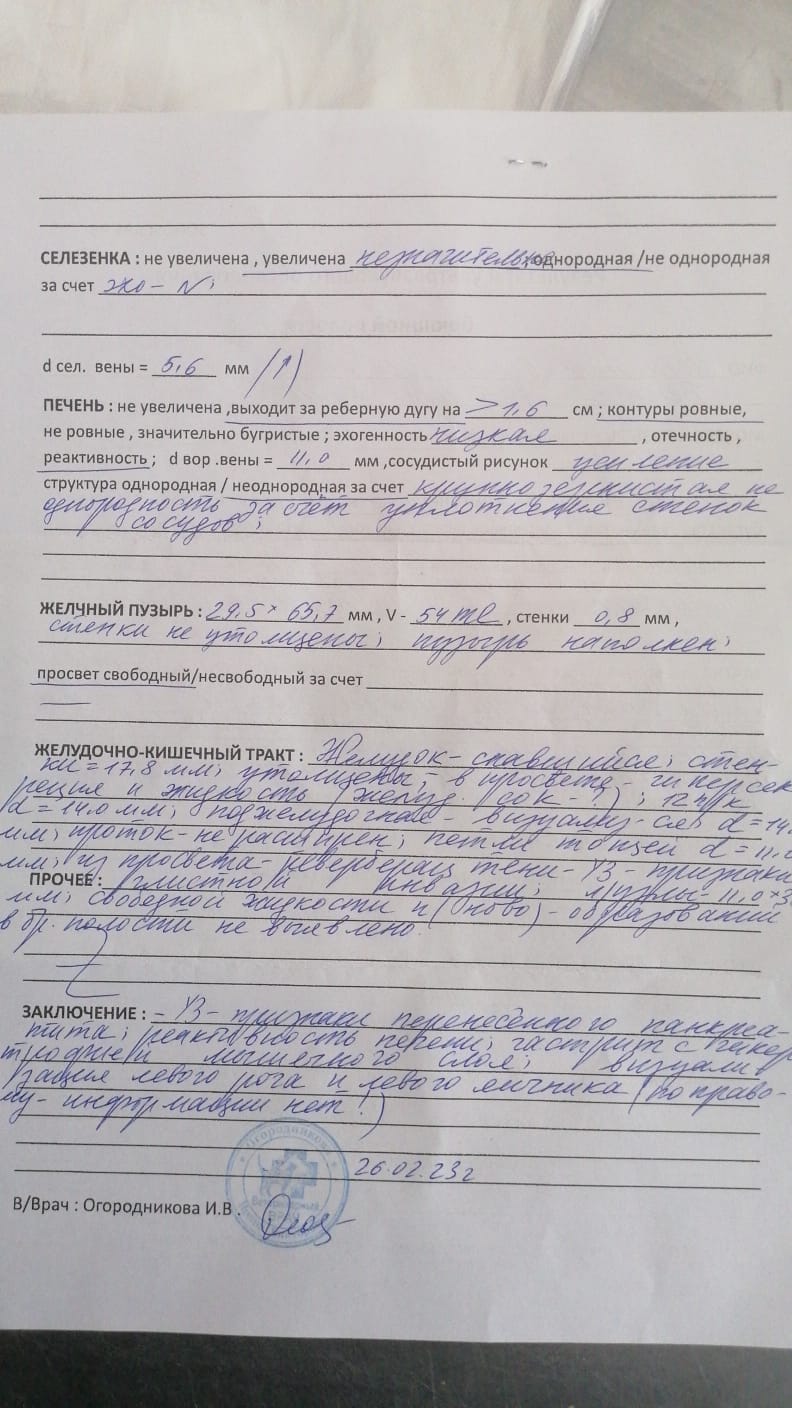 СЕЛЕЗЕНКА : не увеличена , увеличена незначительно ; однородная /не однородная
за счет эхо - N ;
d сел. вены = 5,6 мм (↑)
ПЕЧЕНЬ : не увеличена ,выходит за реберную дугу на > 1,6 см ; контуры ровные,
не ровные , значительно бугристые ; эхогенность низкая , отечность ,
реактивность ; d вор .вены = 11,0 мм ,сосудистый рисунок усиление
структура однородная / неоднородная за счет крупнозернистая не
однородность за счёт уплотнения стенок
сосудов ;
ЖЕЛЧНЫЙ ПУЗЫРЬ : 29,5 × 65,7 мм , V - 54 ml , стенки 0,8 мм ,
стенки не утолщены; пузырь наполнен;
просвет свободный/несвободный за счет
—
ЖЕЛУДОЧНО-КИШЕЧНЫЙ ТРАКТ : Желудок - спавшийся; стен-
ки = 17,8 мм; утолщены; в просвете - гиперсек
реция и жидкость (желуд. сок - ?) ; 12 п/к
d = 14,0 мм; поджелудочная - визуализ-ся d = 14,
мм; проток - не расширен; петли тощей d = 11,0
мм; из просвета - реверберац тени - УЗ - признаки
ПРОЧЕЕ : глистной инвазии; л/узлы - 11,0×3
мм; свободной жидкости и (ново) - образований
в бр. полости не выявлено.
ЗАКЛЮЧЕНИЕ : - УЗ - признаки перенесённого панкреа-
тита; реактивность печени; гастрит с гипер
трофией мышечного слоя; визуали
зация левого рога и левого яичника (по право-
му - информации нет !)
26.02.23г
В/Врач : Огородникова И.В .
Огородникова